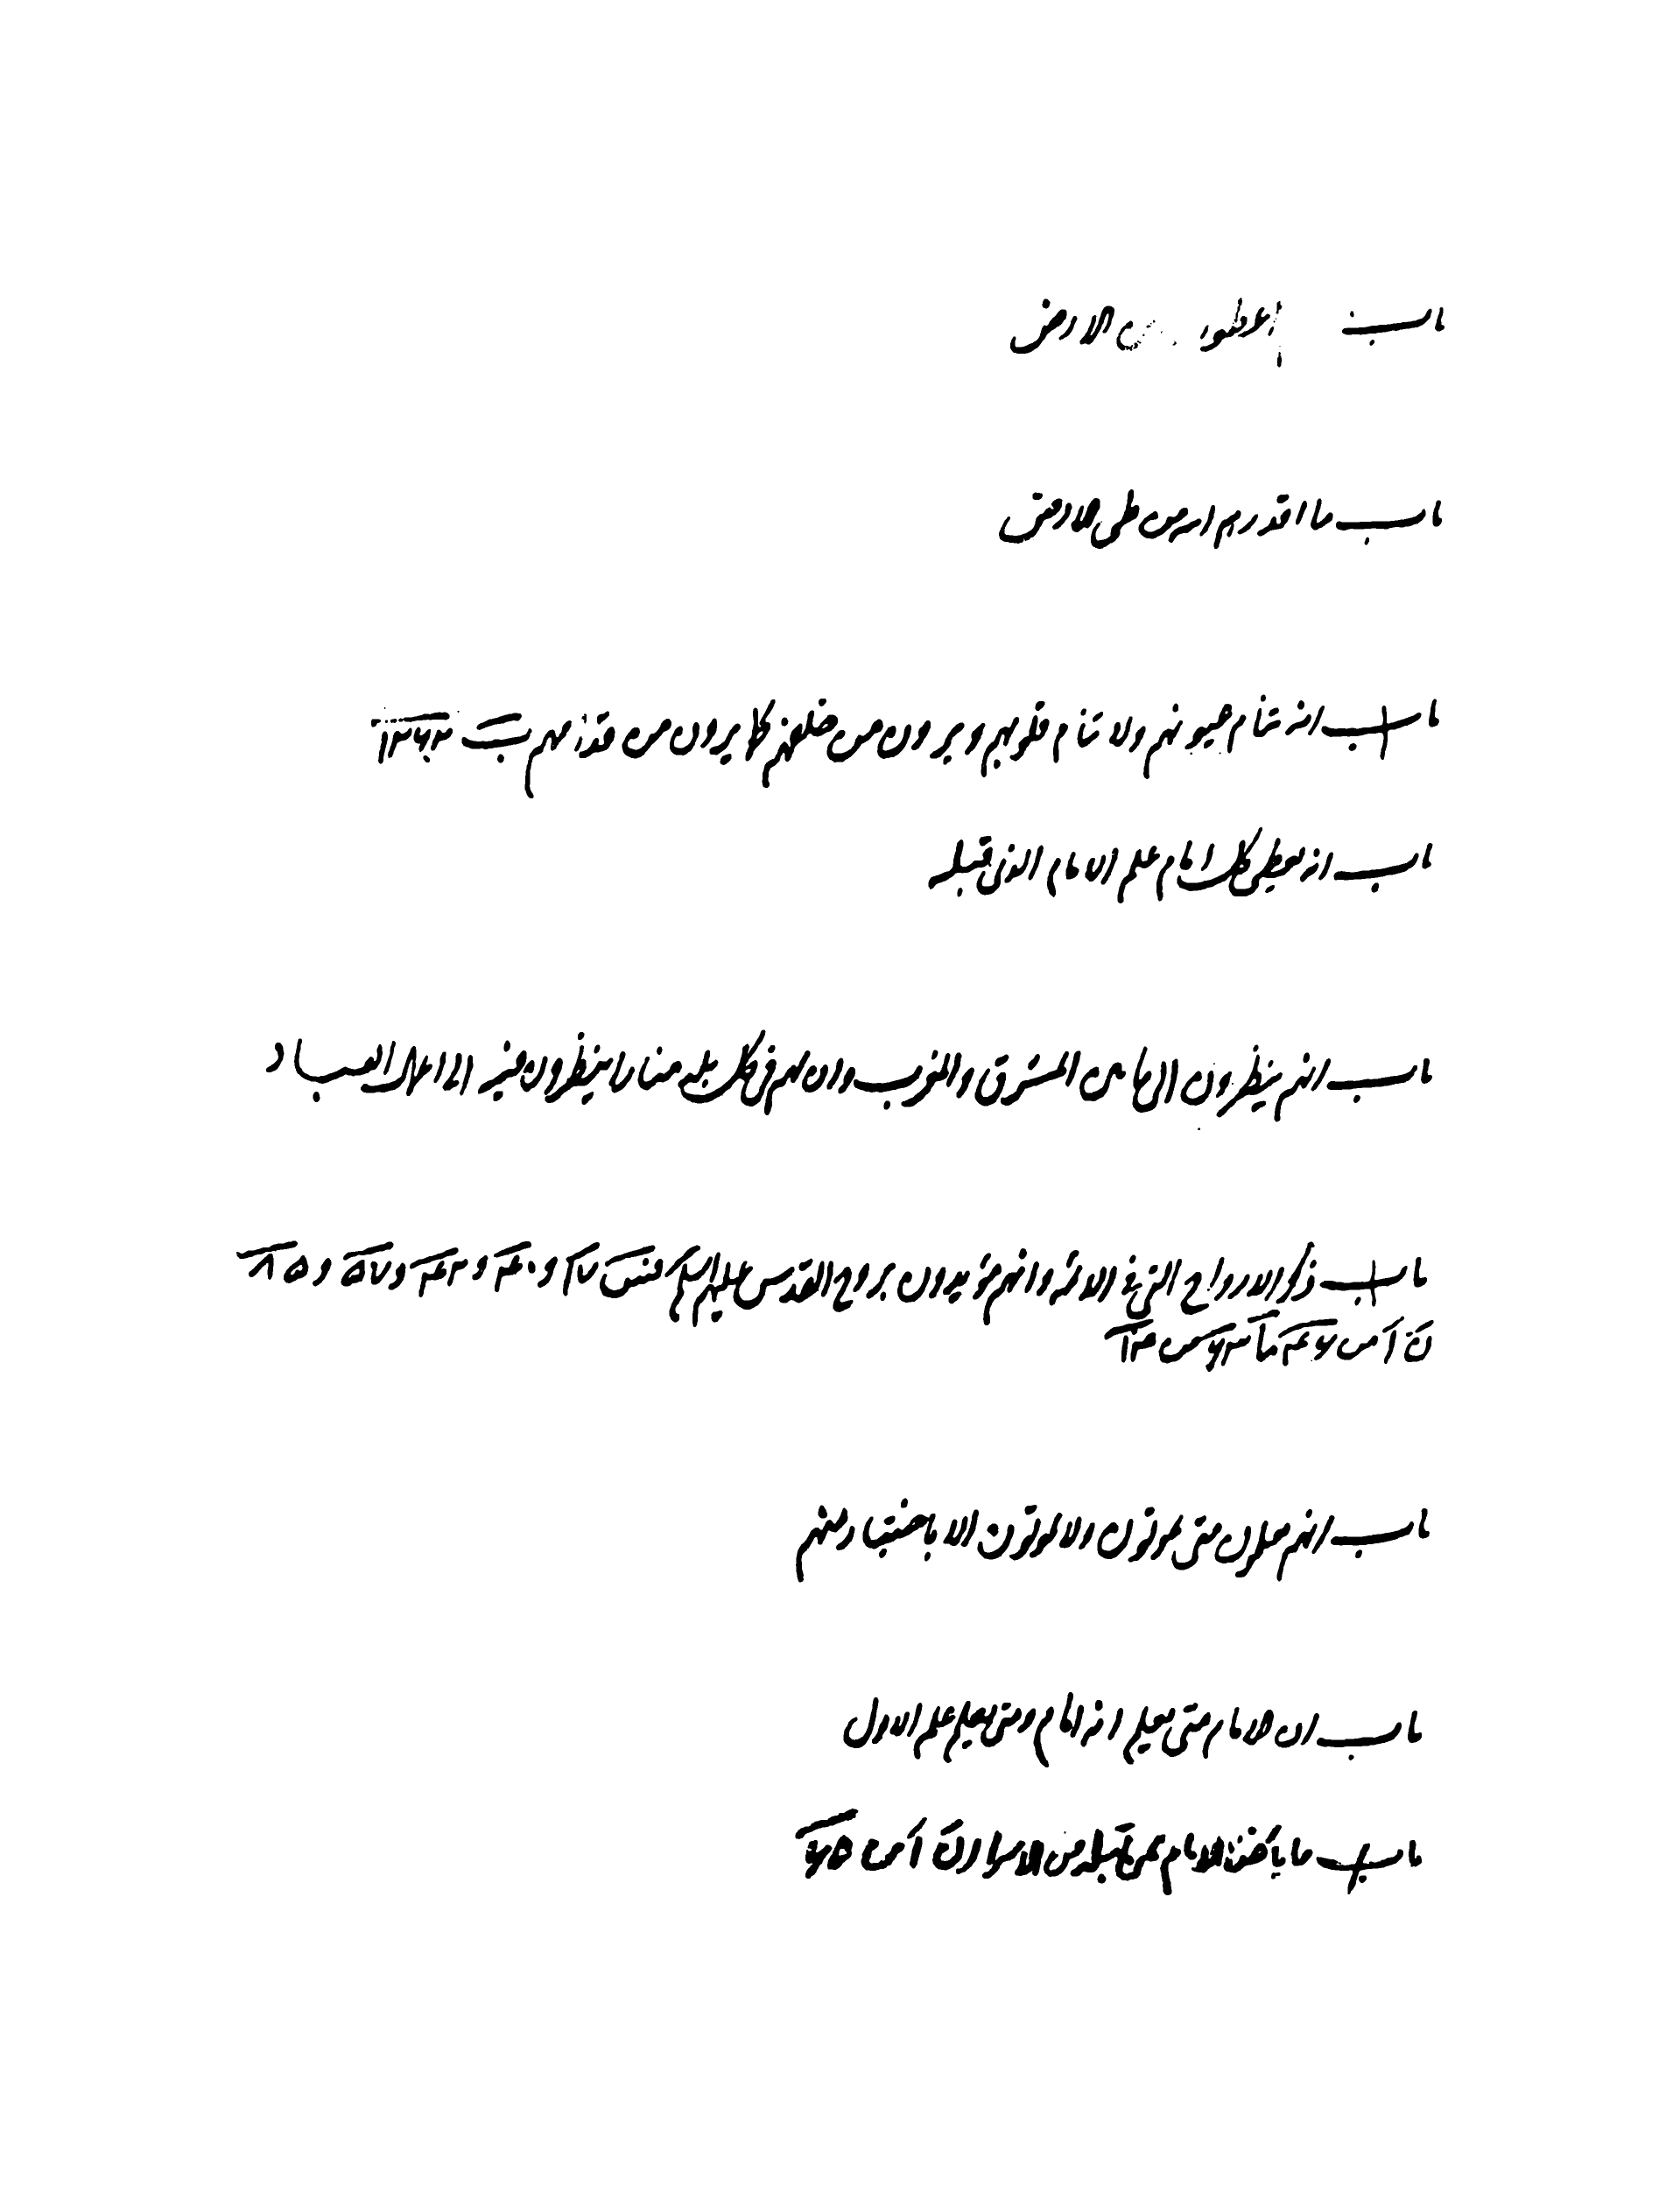 باب الارض
باب ما اقدرهم الله من طى الارض
باب انه تنام عيونهم ولا تنام قلوبهم و يرون من خلفهم كما يرون من قدامهم
باب انه يعطى كل امام علم الامام الذى قبله
باب انهم ينظرون الى ما بين المشرق والمغرب وان لهم فى كل بلد منارا ينظرون فيه الى اعمال العباد
باب ذكر الارواح التى فى الائمة وانهم مؤيدون بروح القدس عليهم السلم

باب انهم يعلمون متى يموتون ولا يموتون الا باختيار منهم
باب ان الامام متى يعلم انه امام ومتى يعلم علم الاول
باب ما يأخذ الامام عمن قبله من الاسرار